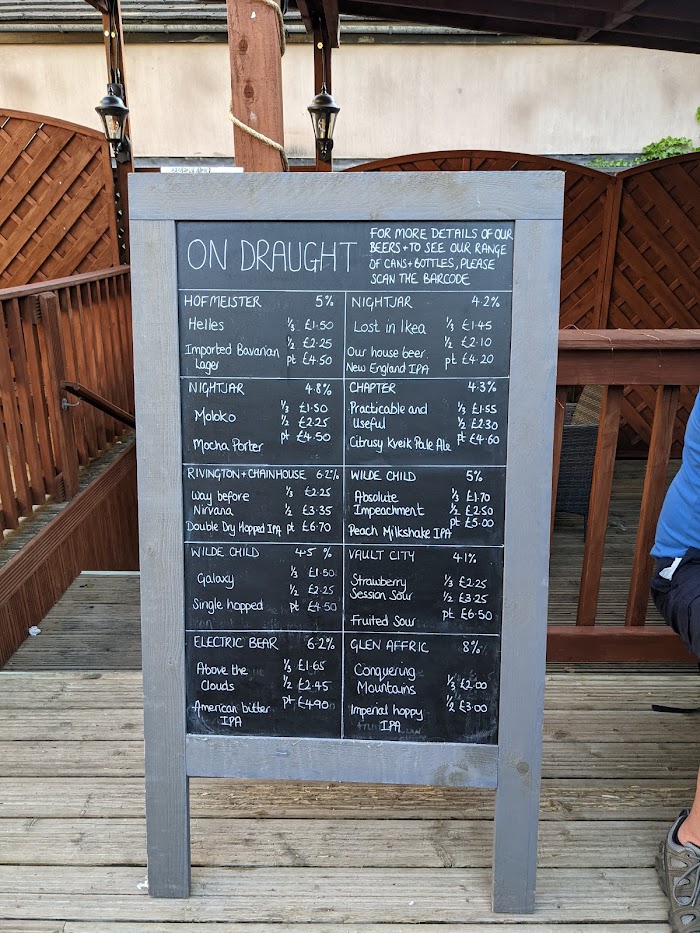 ON DRAUGHT
FOR MORE DETAILS OF OUR
BEERS + TO SEE OUR RANGE
OF CANS + BOTTLES, PLEASE
SCAN THE BARCODE
HOFMEISTER 5%
Helles ⅓ £1.50
½ £2.25
Imported Bavarian pt £4.50
Lager
NIGHTJAR 4.2%
Lost in Ikea ⅓ £1.45
½ £2.10
Our house beer pt £4.20
New England IPA
NIGHTJAR 4.8%
Moloko ⅓ £1.50
½ £2.25
pt £4.50
Mocha Porter
CHAPTER 4.3%
Practicable and ⅓ £1.55
Useful ½ £2.30
Citrusy Kveik Pale Ale pt £4.60
RIVINGTON + CHAINHOUSE 6.2%
Way before ⅓ £2.25
Nirvana ½ £3.35
Double Dry Hopped IPA pt £6.70
WILDE CHILD 5%
Absolute ⅓ £1.70
Impeachment ½ £2.50
pt £5.00
Peach Milkshake IPA
WILDE CHILD 4.5 %
Galaxy ⅓ £1.50
½ £2.25
Single hopped pt £4.50
VAULT CITY 4.1%
Strawberry ⅓ £2.25
Session Sour ½ £3.25
pt £6.50
Fruited Sour
ELECTRIC BEAR 6.2%
Above the ⅓ £1.65
Clouds ½ £2.45
American bitter pt £4.90
IPA
GLEN AFFRIC 8%
Conquering
Mountains ⅓ £2.00
½ £3.00
Imperial hoppy
IPA